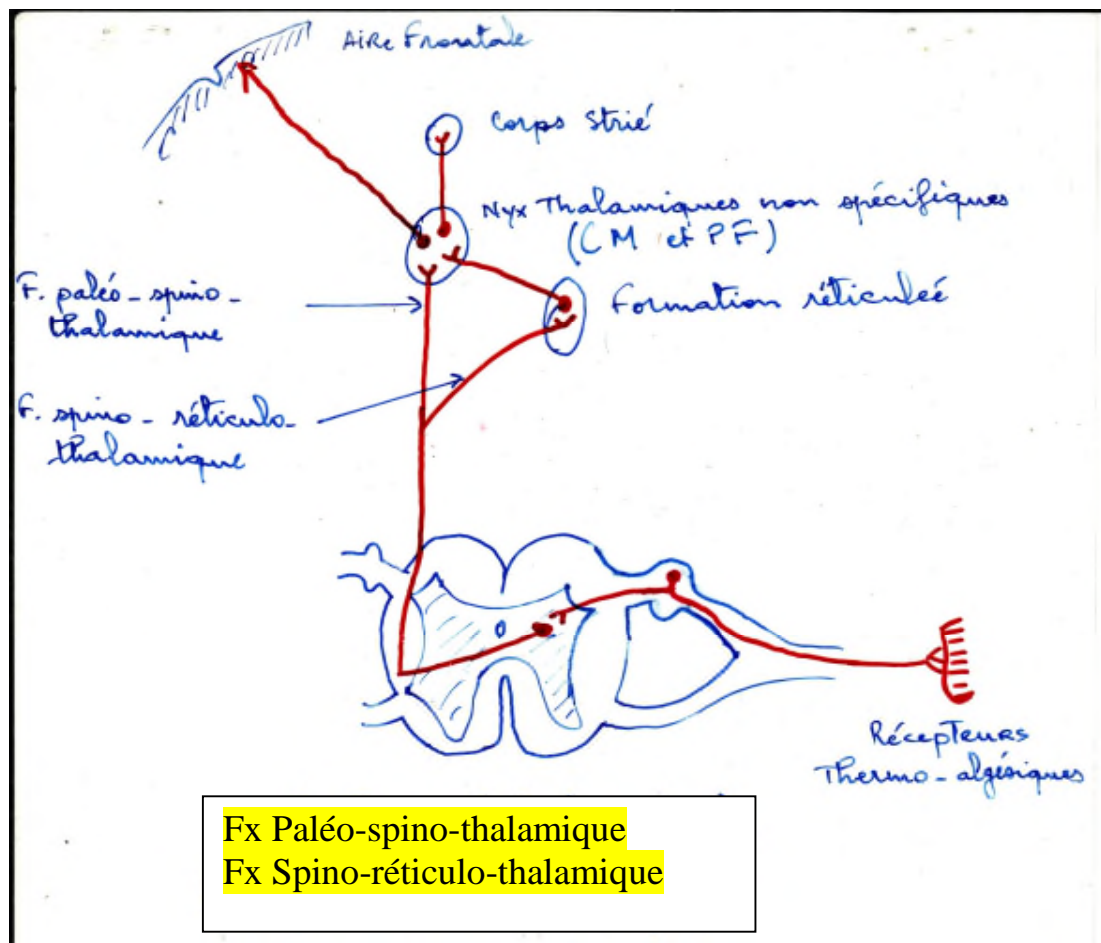 Aire Frontale
Corps Strié
Nyx Thalamiques non spécifiques
(CM et PF)
F. paléo-spino-
thalamique
Formation réticuleé
F. spino-réticulo-
thalamique
Récepteurs
Thermo-algésiques
Fx Paléo-spino-thalamique
Fx Spino-réticulo-thalamique